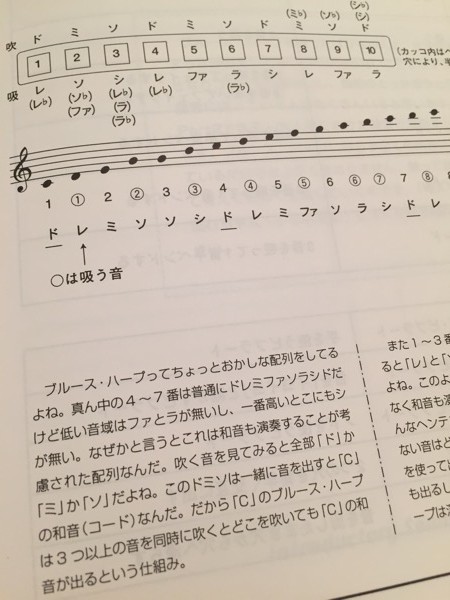 (ミ♭) (ソ♭) (シ♭)
(シ)
吹 ド ミ ソ ド ミ ソ ド ミ ソ ド
1 2 3 4 5 6 7 8 9 10
吸 レ ソ シ レ ファ ラ シ レ ファ ラ
(レ♭) (ソ♭) (レ♭) (レ♭) (ラ♭)
(ファ) (ラ)
(ラ♭)
(カッコ内はベ
穴により、半
1 ① 2 ② 3 ③ 4 ④ 5 ⑤ 6 ⑥ 7 ⑦ 7 ⑧ 8
ド レ ミ ソ ソ シ ド レ ミ ファ ソ ラ シ ド レ
○は吸う音
ブルース・ハープってちょっとおかしな配列をしてる
よね。真ん中の4〜7番は普通にドレミファソラシドだ
けど低い音域はファとラが無いし、一番高いとこにもシ
が無い。なぜかと言うとこれは和音も演奏することが考
慮された配列なんだ。吹く音を見てみると全部「ド」か
「ミ」か「ソ」だよね。このドミソは一緒に音を出すと「C」
の和音(コード)なんだ。だから「C」のブルース・ハープ
は3つ以上の音を同時に吹くとどこを吹いても「C」の和
音が出るという仕組み。
また1〜3番
ると「レ」と「ソ
よね。このよ
なく和音も演
んなヘンテ
ない音はど
を使って出
も出るし
ープは